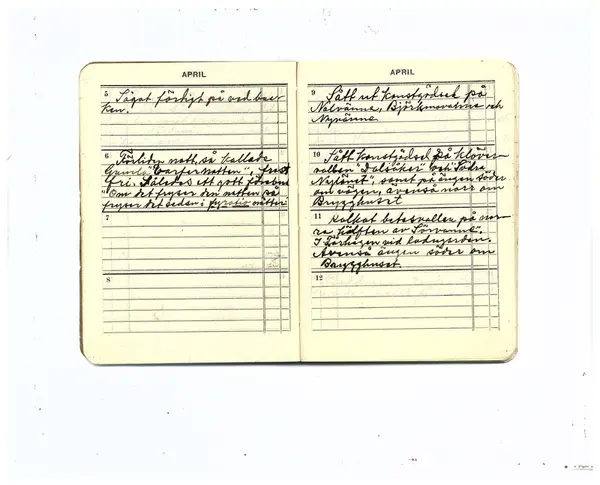 APRIL
5 Sågat färdigt på vedbac
ken.
6 Förliden natt, så kallade
Gamla "Varfernatten", frost
fri. Således ett gott
"Om det fryser den natten så
fryser det sedan i fyratio nätter
7
8
APRIL
9 Sått ut konstgödsel på
Nolvänna, Björkmovallarna och
Nyvänna.
10 Sått konstgödsel på klöver
vallen "Dalsåker" och "Södra
Nylänet", samt på ängen söder
om vägen, avenså norr om
Brygghuset
11 Kalkat betesvallen på nor
ra hälften av Sörvanna".
I Förhagen vid ladugården.
Avenså ängen söder om
Brygghuset.
12